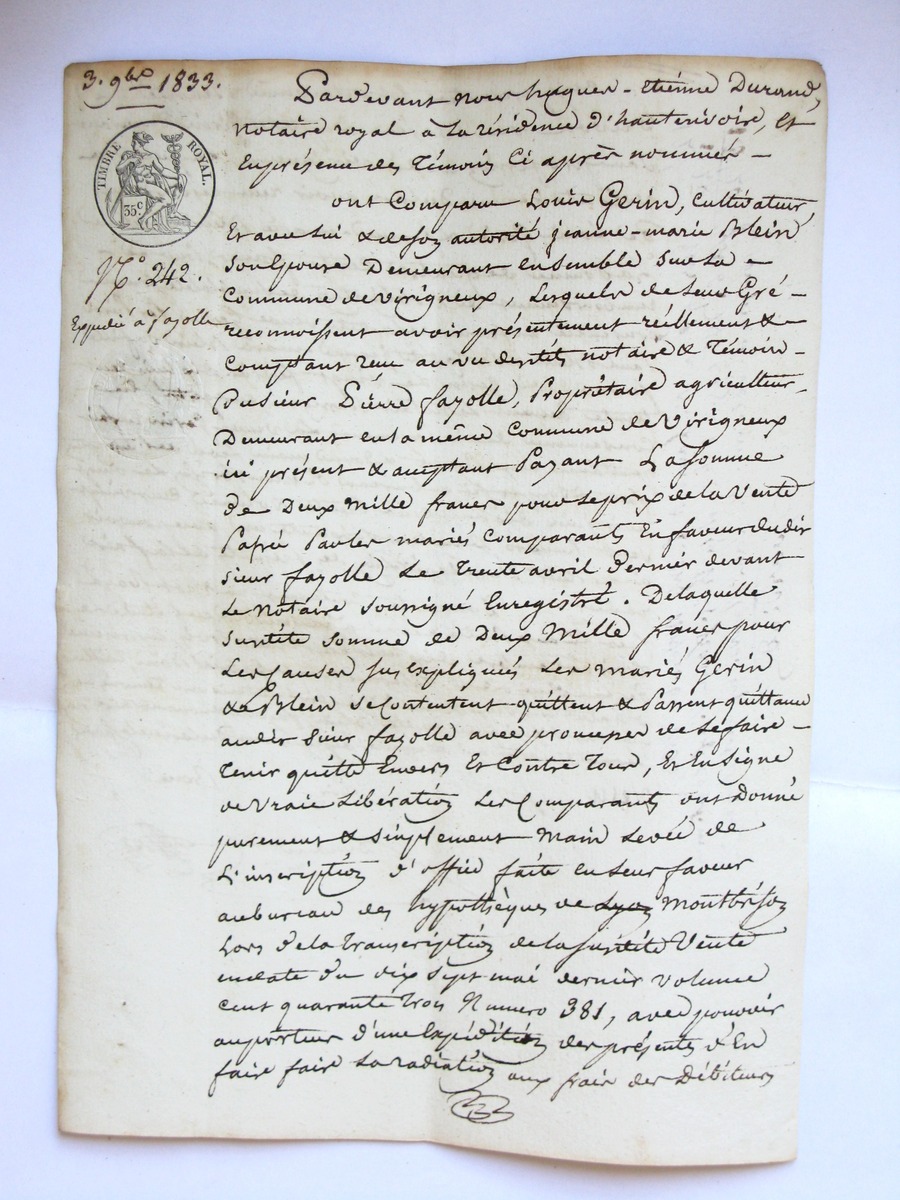 3. 9bre 1833.
TIMBRE ROYAL.
35c
N°. 242.
Expedié à fayolle
Pardevant nous hugues-étiénne Durand,
notaire royal à la résidence d'hauterivoire, Et
En présence des témoins Ci après nommés —
ont Comparu Louis Gerin, Cultivateur,
Et avec lui & de son autorité jeanne-marie Blein
son Epouse Demeurant ensemble sur la —
Commune de Virigneux, lesquels de leur Gré —
reconnoissent avoir présentement réellement & —
Comptant reçu au vu desdits notaire & Témoins —
Du sieur Pierre fayolle, Propriétaire agriculteur,
Demeurant en la même Commune de Virigneux
ici présent & acceptant Payant La Somme
de Deux Mille francs pour le prix de la Vente
Passé Par les mariés Comparants En faveur dudit
sieur fayolle Le trente avril Dernier devant
Le Notaire soussigné Enregistré. De laquelle
susdite somme de Deux Mille francs pour
Les Causes sus expliquées Les mariés Gerin
& Blein se Contentent quittent & Passent quittance
audit sieur fayolle avec promesse de le faire —
tenir quitte Envers Et Contre Tous, Et En Signe
de Vraie Libération Les Comparants ont Donné
purement & simplement Main Levée de
L'inscription d'office faite en leur faveur
au bureau des hypothèques de Lyon Montbrison
Lors de la transcription de la susdite Vente
en date du dix sept mai dernier volume
cent quarante trois Numero 381, avec pouvoir
au porteur d'une Expédition des présentes d'En
faire faire La radiation aux frais des Débiteurs